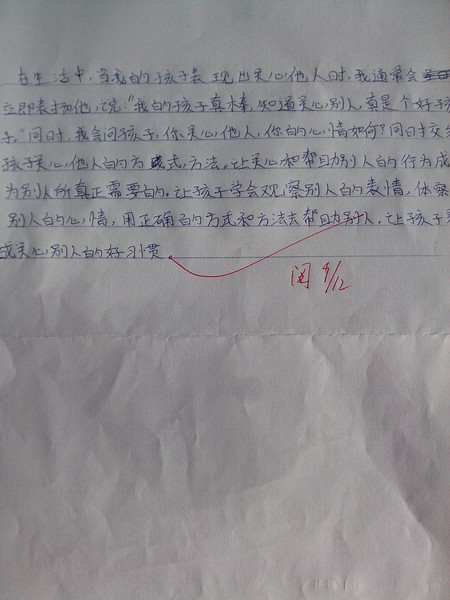 在生活中，当我的孩子表现出关心他人时，我通常会
立即表扬他，说：“我的孩子真棒，知道关心别人，真是个好孩
子。”同时，我会问孩子，你关心他人，你的心情如何？同时交给
孩子关心他人的方式，方法。让关心和帮助别人的行为成
为别人所真正需要的。让孩子学会观察别人的表情，体察
别人的心情，用正确的方式和方法去帮助别人，让孩子
成关心别人的好习惯。
阅 9/12